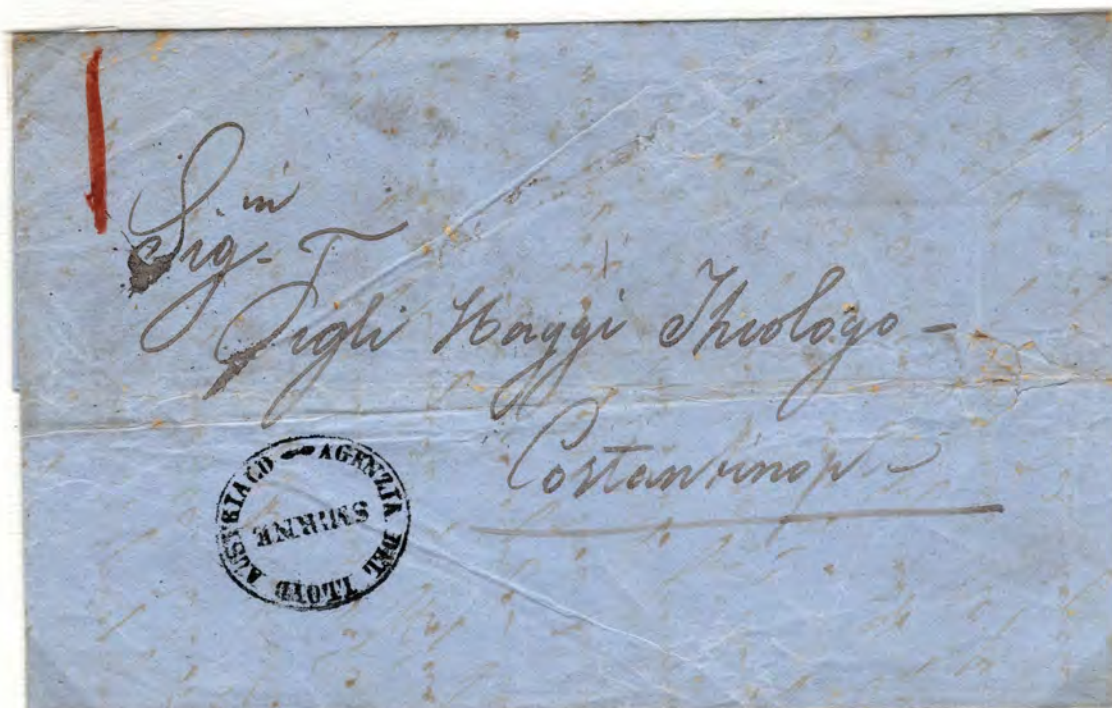 Sig.ri
Figli Haggi Theologo -
Costantinopli
AGENZIA DEL LLOYD AUSTRIACO
SMIRNE